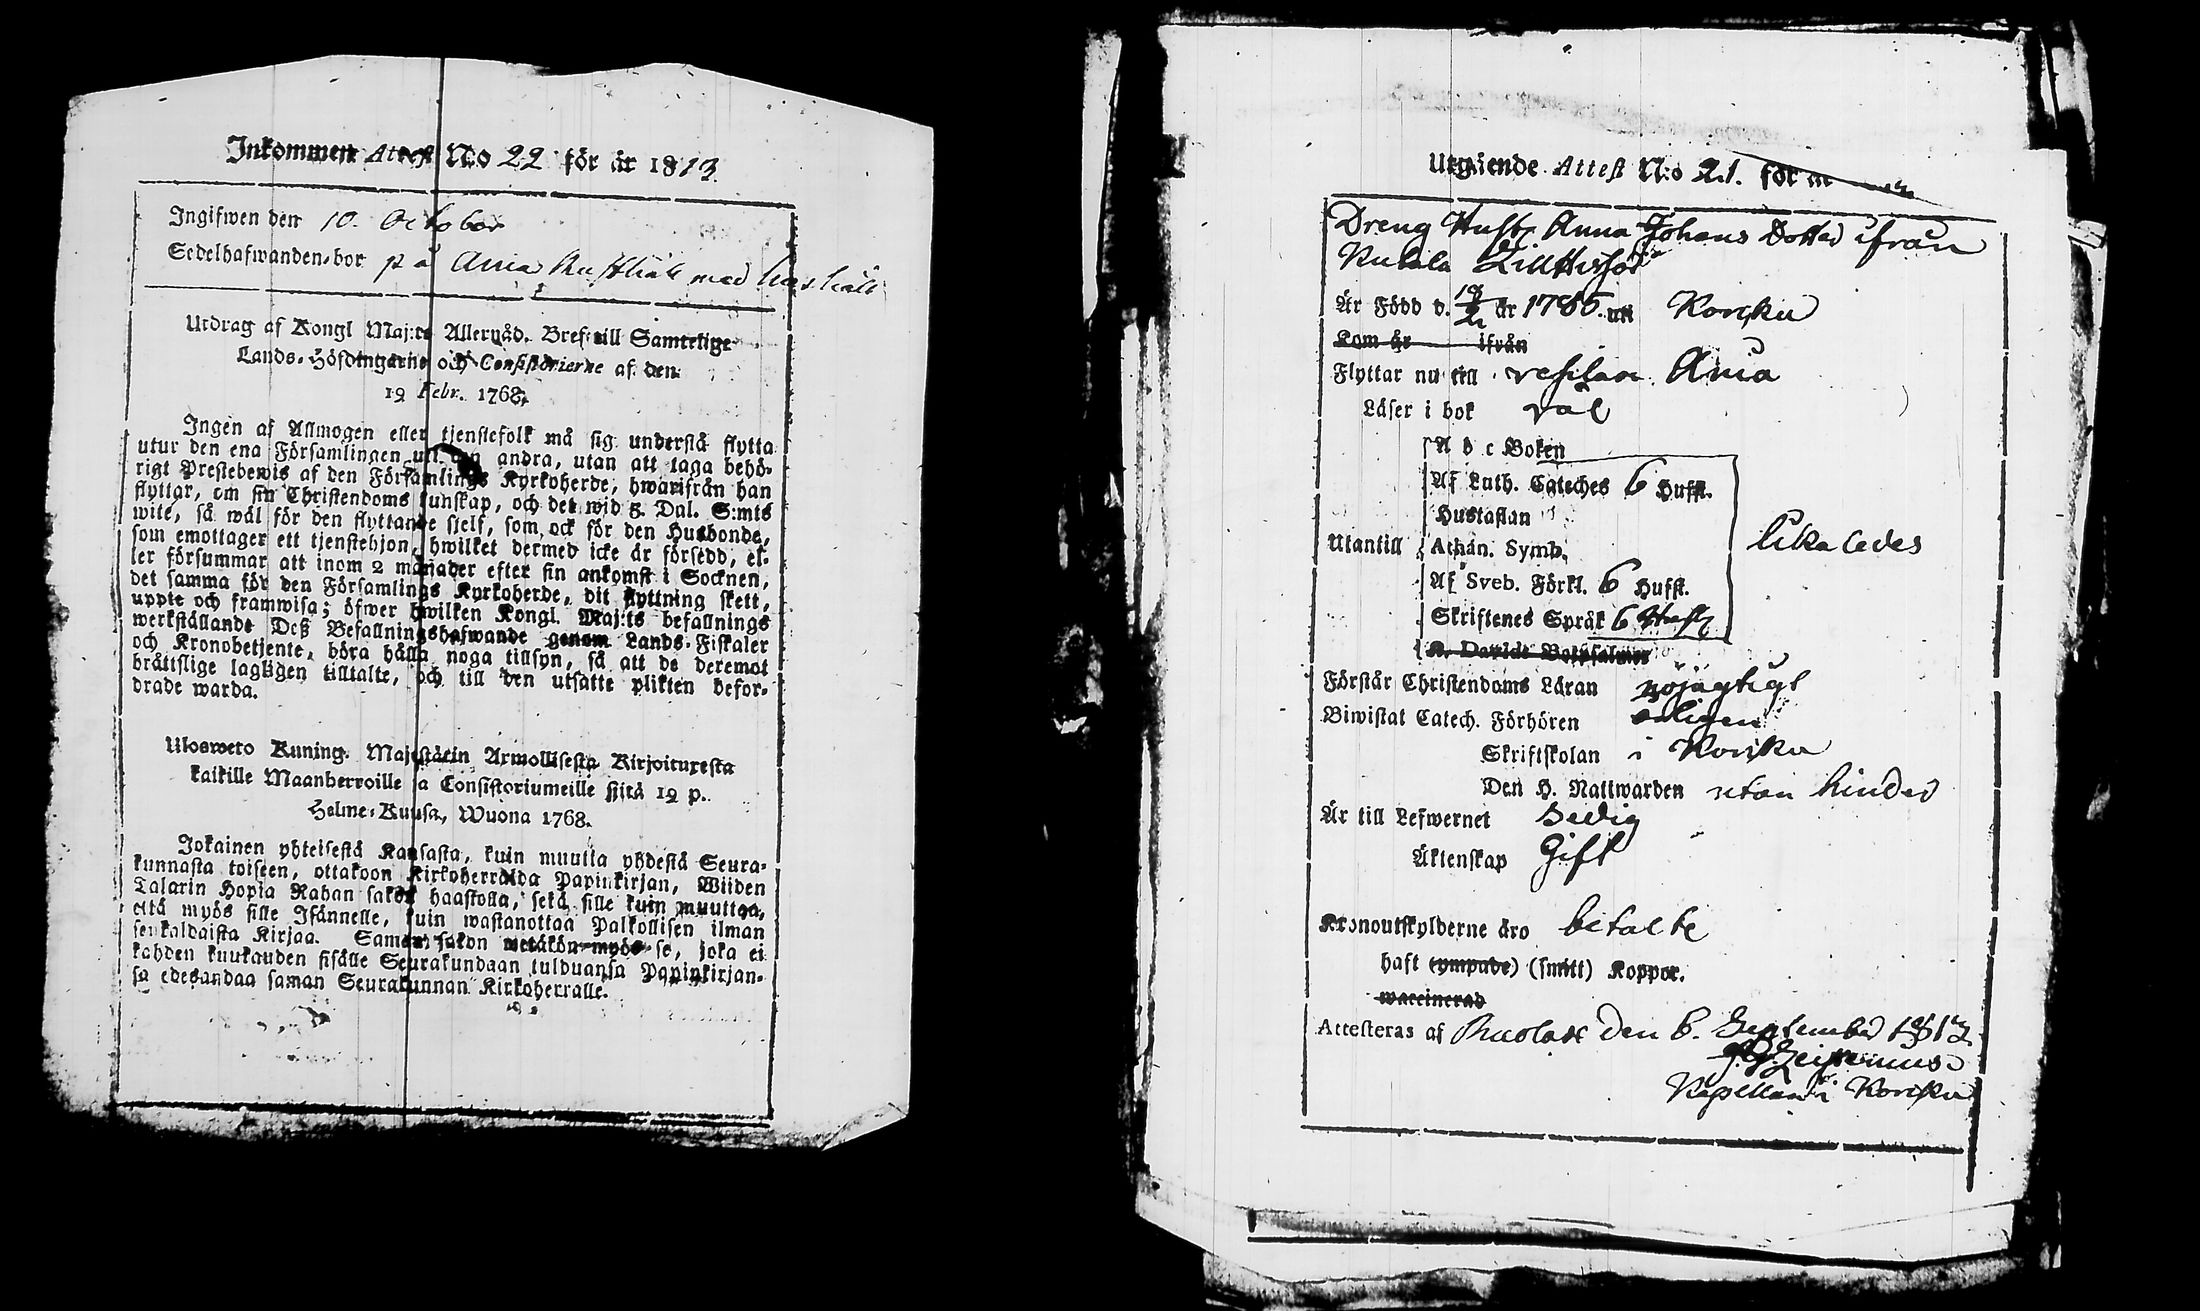 Inkommen Attest N:o 22 för år 1813.
Ingifwen den 10. October
Sedelhafwanden bor på Ania Rusthåll med
Utdrag af Kongl Maj:ts Allernåd. Bref till Samtelige
Lands-Höfdingarne och Consistorierne af den
19 Febr. 1768.
Ingen af Allmogen eller tjenstefolk må sig understå flytta
utur den ena Församlingen till den andra, utan att taga behö-
rigt Prestebewis af den Församlings Kyrkoherde, hwarifrån han
flyttar, om sin Christendoms kunskap, och det wid 5. Dal. S:mts
wite, så wäl för den flyttande sjelf, som ock för den Husbonde,
som emottager ett tjenstehjon, hwilket dermed icke är försedd, el-
ler försummar att inom 2 månader efter sin ankomst i Socknen,
det samma för den Församlings Kyrkoherde, dit flyttning skett,
uppte och framwisa; öfwer hwilken Kongl. Maj:ts befallnings
werkställande Deß Befallningshafwande genom Lands-Fiskaler
och Kronobetjente, böra hålla noga tillsyn, så att de deremot
bråttslige lagligen tilltalte, och till den utsatte plikten befor-
drade warda.
Ulosweto Kuning. Majestätin Armollisesta Kirjoituxesta
kaikille Maanherroille ja Consistoriumeille siitä 19 p.
Helme-Kuusa, Wuona 1768.
Jokainen yhteisestä Kansasta, kuin muutta yhdestä Seura-
kunnasta toiseen, ottakoon Kirkoherralda Papinkirjan, Wiiden
Talarin Hopia Rahan sakon haastolla, sekä sille kuin muuttaa,
että myös sille Isännelle, kuin wastanottaa Palkollisen ilman
senkaldaista Kirjaa. Saman sakon wetäkön myös se, joka ei
kahden kuukauden sisälle Seurakundaan tulduansa Papinkirjan-
sa edesandaa saman Seurakunnan Kirkoherralle.
Utgående Attest N:o 21. för år
Dreng Hustr. Anna Johans Dotter ifrån
Kutala
Är Född d. 18/2 år 1785. uti Korpku
Kom år ifrån
Flyttar nu till Ania
Läser i bok väl
A b c Boken
Af Luth. Cateches 6 Hufst.
Hustaflan
Utantill Athan. Symb. likaledes
Af Sveb. Förkl. 6 Hufst.
Skriftenes Språk 6 Hufst.
K. Davids Botpsalmer
Förstår Christendoms Läran nöjagtigt
Biwistat Catech. Förhören årligen
Skriftskolan i
Den H. Nattwarden utan hinder
Är till Lefwernet Sedig
Äktenskap Gift
Kronoutskylderne äro betalte
haft (ympade) (smitt) Koppor.
waccinerad
Attesteras af den 6. September 1813
Kapellan i